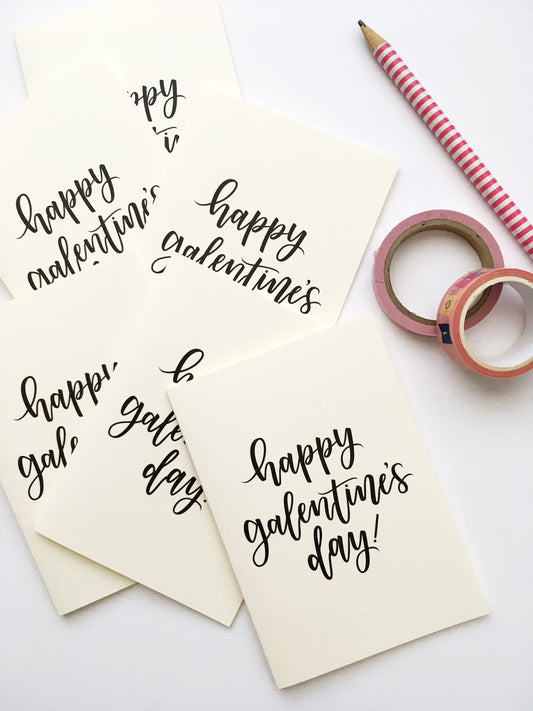 happy
happy
galentine's
happy
galentine's
happy
day!
happy
galentine's
day!